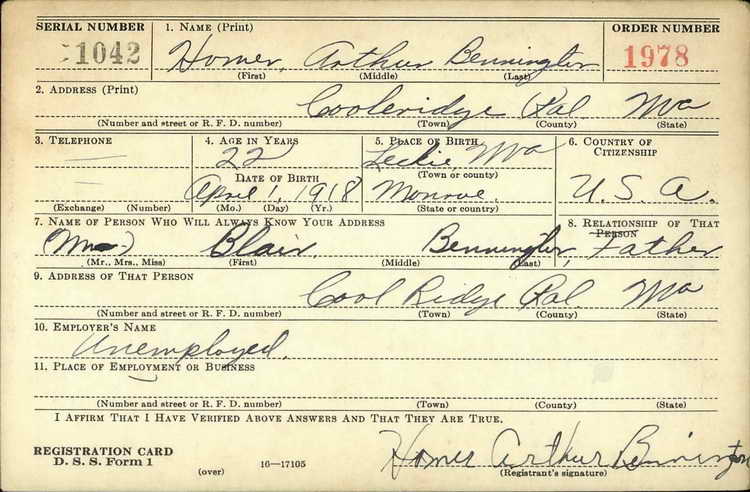 SERIAL NUMBER
1. NAME (Print)
ORDER NUMBER
1042
Homer Arthur Bennington
1978
(First) (Middle) (Last)
2. ADDRESS (Print)
Cooleridge Ral
(Number and street or R. F. D. number) (Town) (County) (State)
3. TELEPHONE
4. AGE IN YEARS
22
DATE OF BIRTH
April 1, 1918
(Exchange) (Number)
(Mo.) (Day) (Yr.)
5. PLACE OF BIRTH
Leckie
(Town or county)
Monroe
(State or country)
6. COUNTRY OF
CITIZENSHIP
U. S. A.
7. NAME OF PERSON WHO WILL ALWAYS KNOW YOUR ADDRESS
8. RELATIONSHIP OF THAT
PERSON
Blair Bennington, Father
(Mr., Mrs., Miss) (First) (Middle) (Last)
9. ADDRESS OF THAT PERSON
Cool Ridge Ral
(Number and street or R. F. D. number) (Town) (County) (State)
10. EMPLOYER'S NAME
Unemployed.
11. PLACE OF EMPLOYMENT OR BUSINESS
(Number and street or R. F. D. number) (Town) (County) (State)
I AFFIRM THAT I HAVE VERIFIED ABOVE ANSWERS AND THAT THEY ARE TRUE.
REGISTRATION CARD
D. S. S. Form 1
(over)
16—17105
Homer Arthur Bennington
(Registrant's signature)